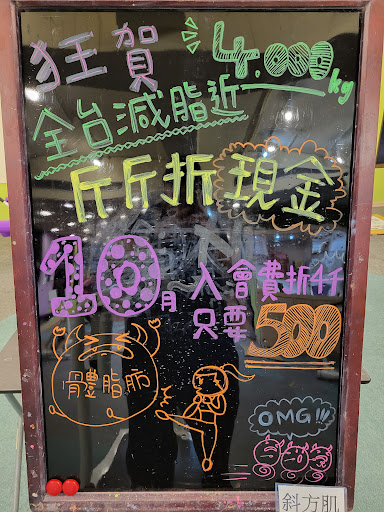 狂賀
4,000kg
全台減脂近
斤斤折現金
10月入會費折4千
只要500
體脂肪
OMG!!!
斜方肌